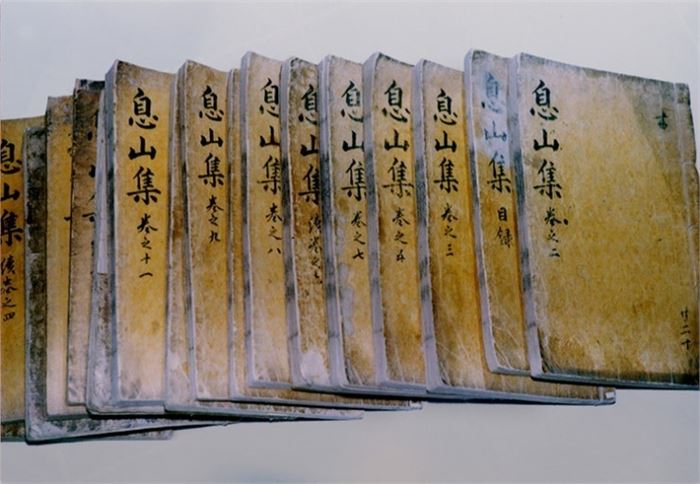 息山集 卷之二
息山集 目録
息山集 卷之三
息山集 卷之五
息山集 卷之七
息山集 續卷之
息山集 卷之八
息山集 卷之九
息山集 卷之十一
息山集 續卷之四